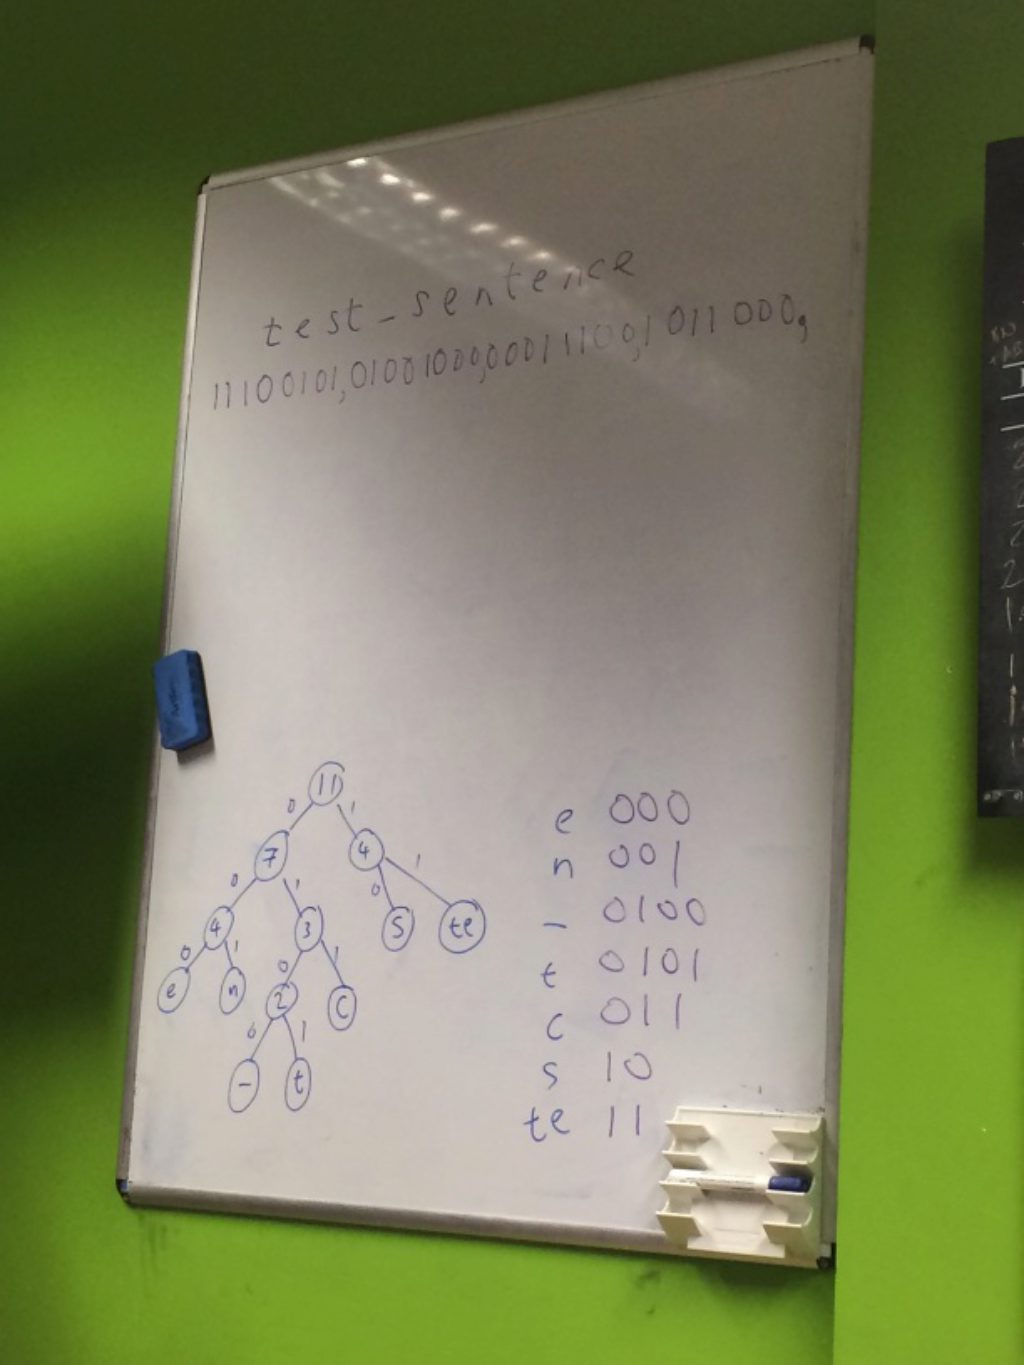 test_sentence
11100101,01001000,00011100,1011000,
11
0 1
7 4
0 1 0 1
4 3 s te
0 1 0 1
e n 2 c
0 1
- t
e 000
n 001
- 0100
t 0101
c 011
s 10
te 11